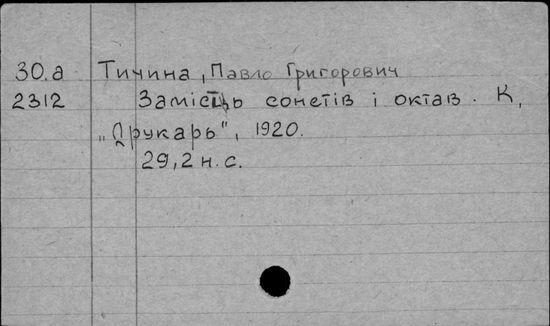 30.а Тичина, Павло Григорович
2312 Замісць сонетів і октав. К,
„Друкарь", 1920.
29,2 н. с.